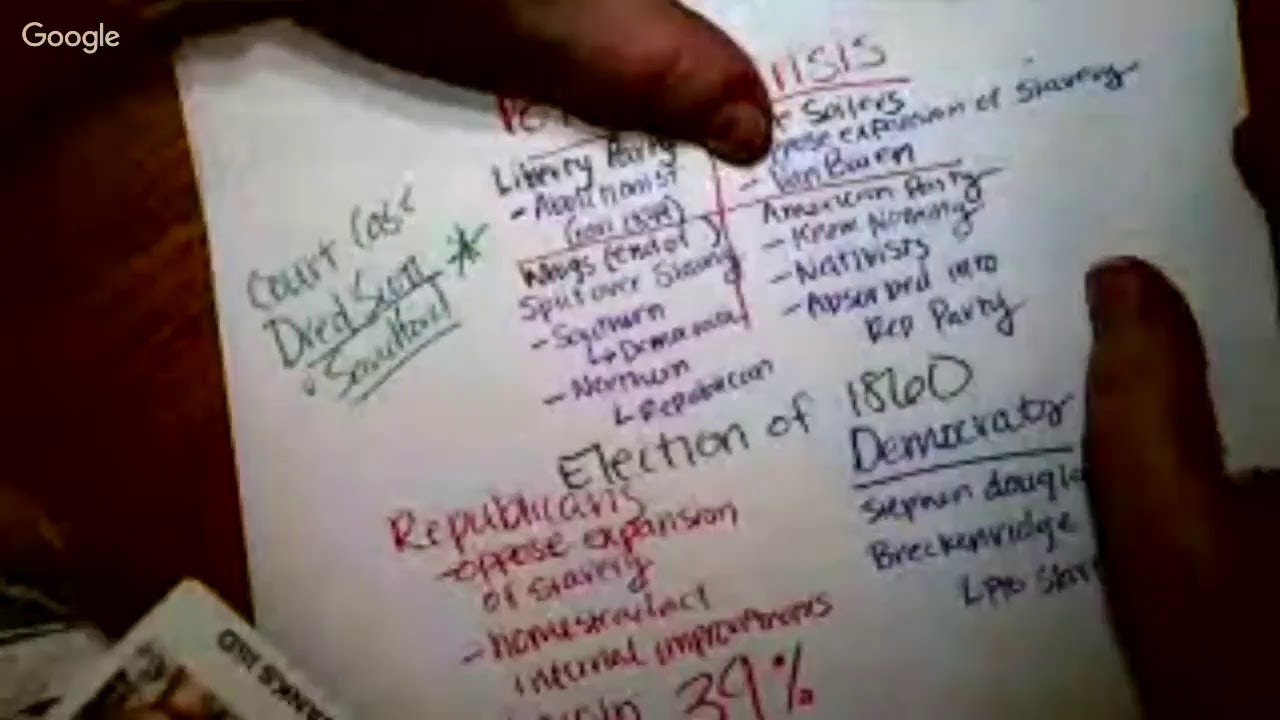 Google
Court Case
Dred Scott
Liberty Party
- Abolitionist
Whigs (end of)
Split over Slavery
- Southern
↳ Democrat
- Northern
↳ Republican
Soilers
expansion of Slavery
- Van Buren
American Party
- Know Nothing
- Nativists
- Absorbed into
Rep Party
Election of 1860
Republicans
- oppose expansion
of Slavery
- homestead act
internal improvements
39%
Democrats
Stephen dougla
Breckenridge
↳ Pro Sla